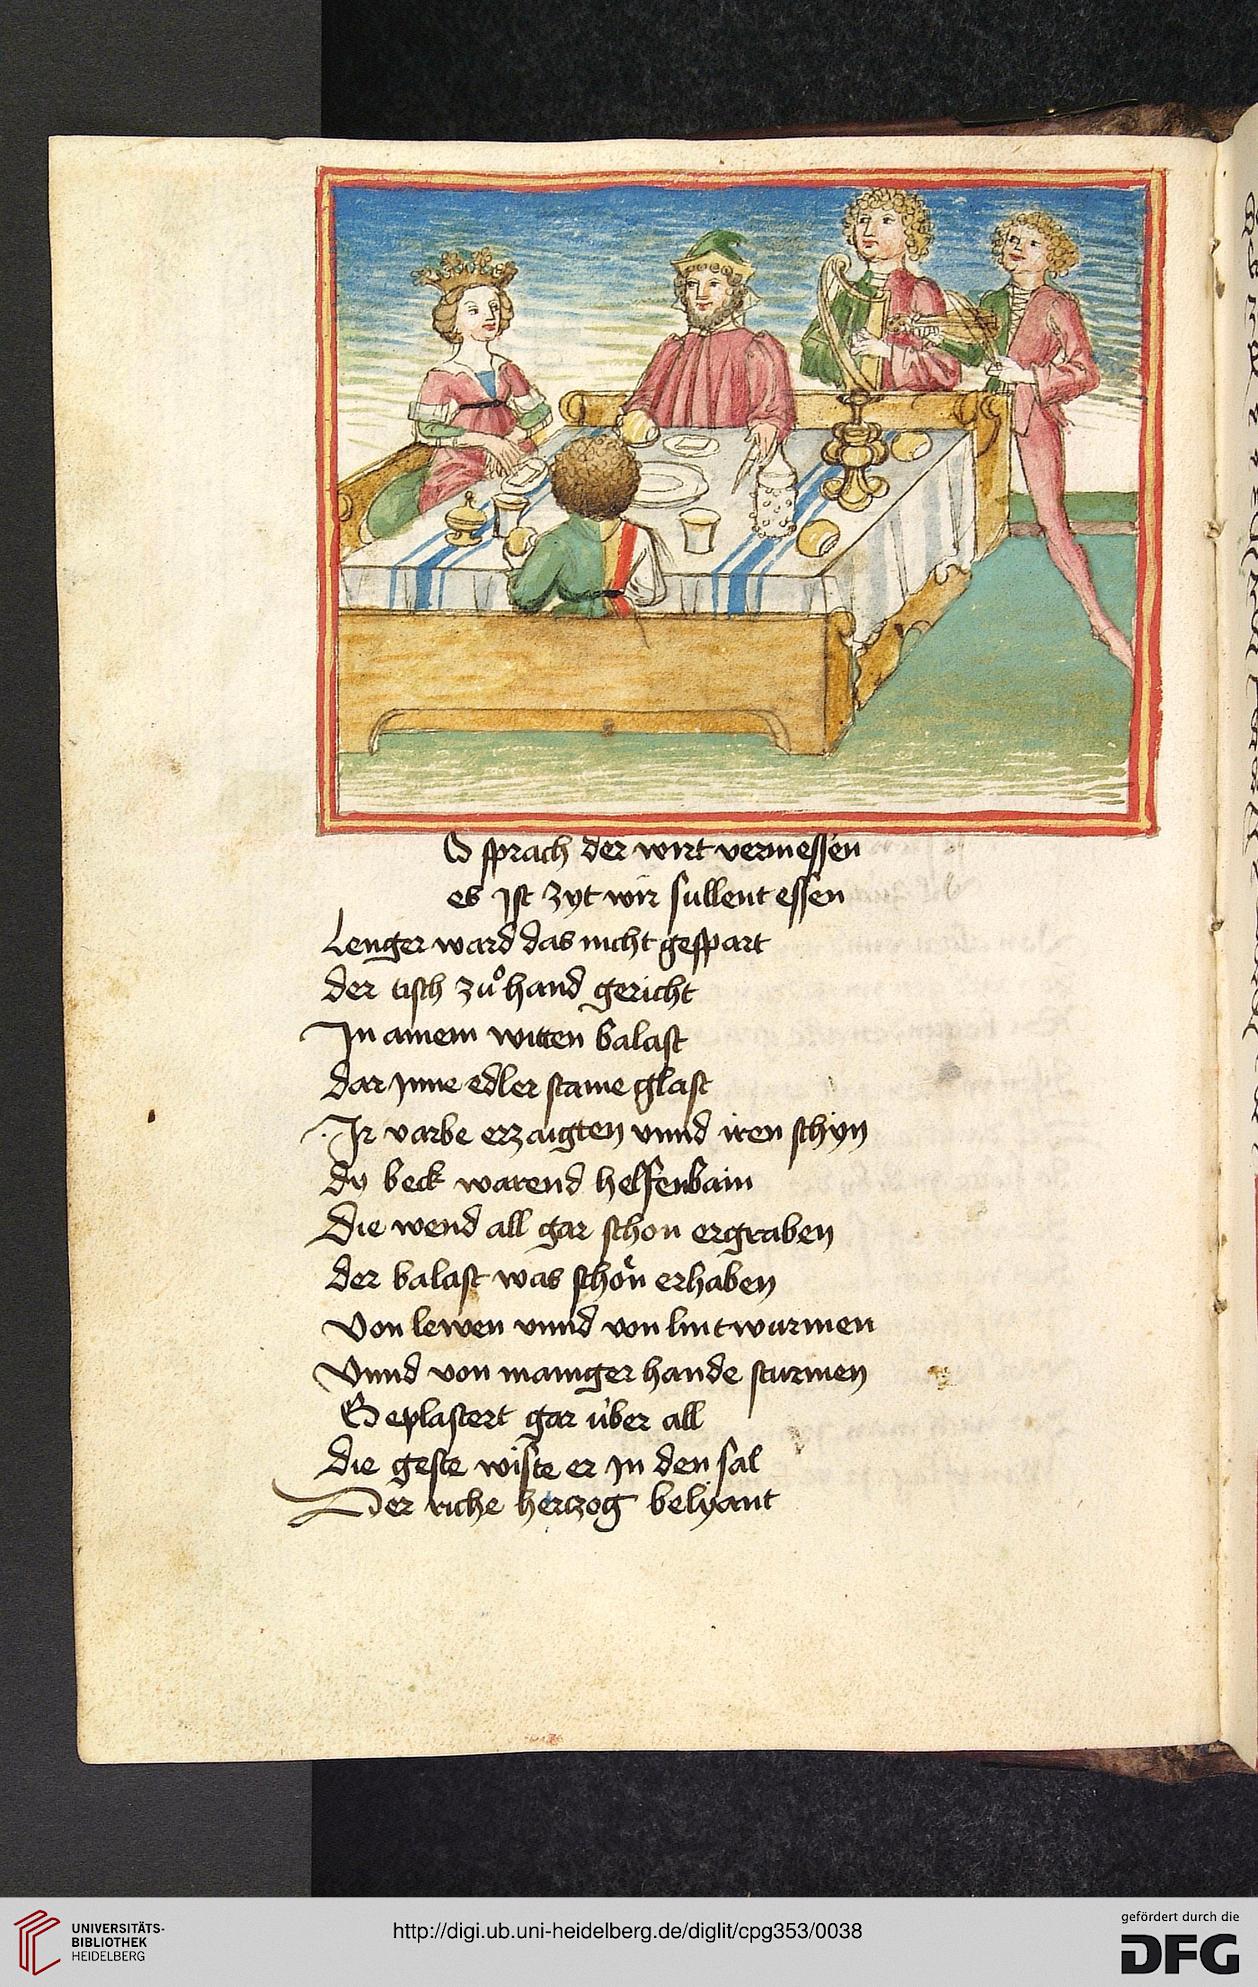 O sprach der wirt vermessen
es jst zyt wir sullent essen
Lenger ward das nicht gespart
der tisch zů hand gericht
In ainem witten balast
dar jnne edler staine glast
Ir varbe erzaigten vnnd iren schyn
dy beck warend helfenbain
Die wend all gar schon ergraben
der balast was schön erhaben
Von lewen vnnd von lintwurmen
Vnnd von mainger hande sturmen
Geplastert gar über all
Die geste wiste er jn den sal
Der riche hertzog belyant
UNIVERSITÄTS-
BIBLIOTHEK
HEIDELBERG
http://digi.ub.uni-heidelberg.de/diglit/cpg353/0038
gefördert durch die
DFG